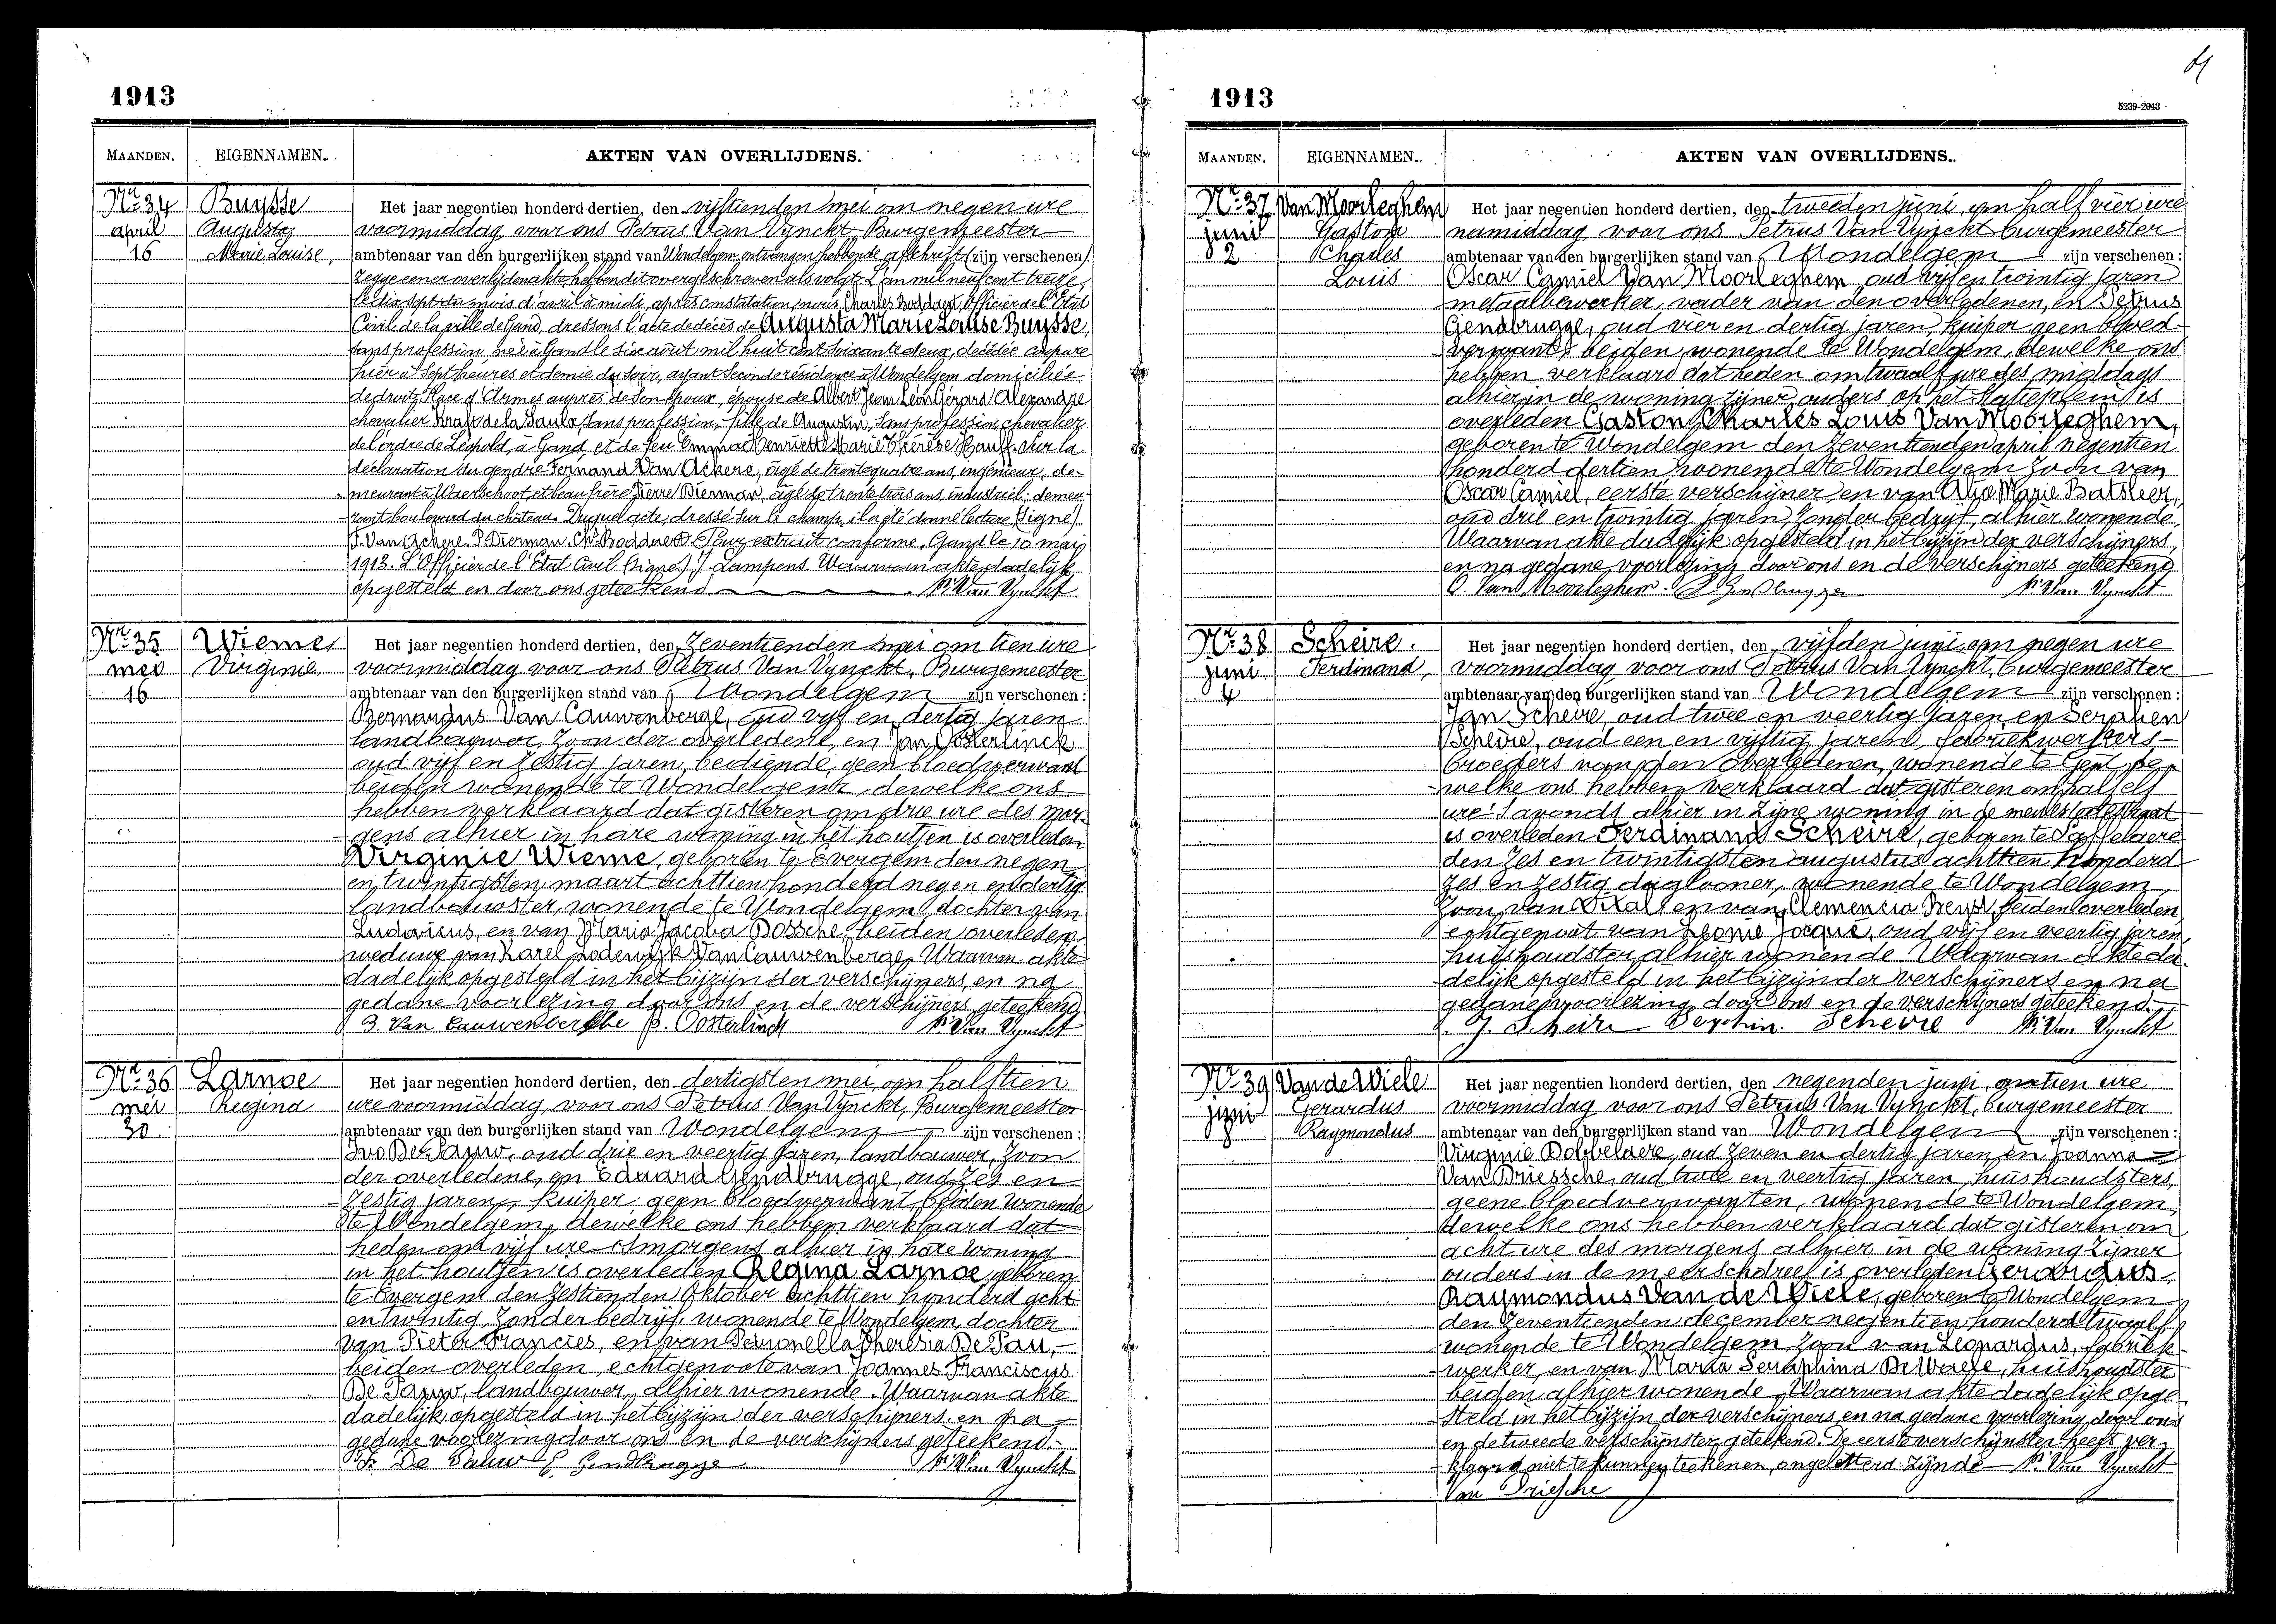 1913
MAANDEN. EIGENNAMEN. AKTEN VAN OVERLIJDENS.
Nr. 34
april
16
Buysse
Augusta
Marie Louise,
Het jaar negentien honderd dertien, den vijftienden mei om negen ure
voormiddag voor ons Petrus Van Vynckt, Burgemeester
ambtenaar van den burgerlijken stand van Wondelgem, ontvangen hebbende afschrift (zijn verschenen)
zegge eener overlijdenakte, hebben dit overgeschreven als volgt: L'an mil neuf cent treize,
le dix sept du mois d'avril à midi, après constatation, nous Charles Boddaert, Officier de l'Etat
Civil de la ville de Gand, dressons l'acte de décès de Augusta Marie Louise Buysse,
sans profession, née à Gand le six août mil huit cent soixante deux, décédée
hier à sept heures et demie du soir, ayant seconde résidence à Wondelgem, domiciliée
de droit, Place d'Armes auprès de son époux, épouse de Albert Jean Léon Gérard Alexandre
chevalier de la Saulx, sans profession, fille de Augustin, sans profession, chevalier
de l'ordre de Léopold, à Gand, et de feu Emma Henriette Marie Thérèse. Sur la
déclaration du gendre Fernand Van Ackere, âgé de trente quatre ans, ingénieur, de-
meurant à Waerschoot, et beau frère Pierre Bierman, âgé de trente trois ans, industriel, demeu-
rant boulevard du château. Duquel acte, dressé sur le champ, il a été donné lecture (signé)
F. Van Ackere. P. Bierman. Ch. Boddaert. Pour extrait conforme, Gand le 10 mai
1913. L'Officier de l'Etat Civil (signé) J. Lampens. Waarvan akte dadelijk
opgesteld en door ons geteekend P. Van Vynckt
Nr. 35
mei
16
Wieme
Virginie.
Het jaar negentien honderd dertien, den zeventienden mei om tien ure
voormiddag voor ons Petrus Van Vynckt, Burgemeester
ambtenaar van den burgerlijken stand van Wondelgem zijn verschenen:
Bernardus Van Cauwenberge, oud vijf en dertig jaren
landbouwer, zoon der overledene, en Jan Oosterlinck
oud vijf en zestig jaren, bediende, geen bloedverwant
beiden wonende te Wondelgem, dewelke ons
hebben verklaard dat gisteren om drie ure des mor-
gens alhier in hare woning in het houtjen is overleden
Virginie Wieme, geboren te Evergem den negen
en twintigsten maart achttien honderd negen en dertig
landbouwster, wonende te Wondelgem, dochter van
Ludovicus, en van Maria Jacoba Bossche, beiden overleden
weduwe van Karel Lodewijk Van Cauwenberge. Waarvan akte
dadelijk opgesteld in het bijzijn der verschijners, en na
gedane voorlezing door ons en de verschijners geteekend
B. Van Cauwenberghe J. Oosterlinck P. Van Vynckt
Nr. 36
mei
30
Larnoe
Regina
Het jaar negentien honderd dertien, den dertigsten mei, om half tien
ure voormiddag, voor ons Petrus Van Vynckt, Burgemeester
ambtenaar van den burgerlijken stand van Wondelgem zijn verschenen:
Ivo De Pauw, oud drie en veertig jaren, landbouwer, zoon
der overledene, en Eduard Gendbrugge, oud zes en
zestig jaren, kuiper, geen bloedverwant, beiden wonende
te Wondelgem, dewelke ons hebben verklaard dat
heden om vijf ure s'morgens alhier in hare woning
in het houtjen is overleden Regina Larnoe, geboren
te Evergem den zestienden Oktober achttien honderd acht
en twintig, zonder bedrijf, wonende te Wondelgem, dochter
van Pieter Francies, en van Petronella Theresia De Pau,
beiden overleden, echtgenoote van Joannes Franciscus
De Pauw, landbouwer, alhier wonende. Waarvan akte
dadelijk opgesteld in het bijzijn der verschijners, en na
gedane voorlezing door ons en de verschijners geteekend.
De Pauw E. Gendbrugge P. Van Vynckt
1913
5239-2043
MAANDEN. EIGENNAMEN. AKTEN VAN OVERLIJDENS.
Nr. 37
juni
2
Van Moorleghem
Gaston
Charles
Louis
Het jaar negentien honderd dertien, den tweeden juni, om half vier ure
namiddag, voor ons Petrus Van Vynckt burgemeester
ambtenaar van den burgerlijken stand van Wondelgem zijn verschenen:
Oscar Camiel Van Moorleghem, oud vijf en twintig jaren
metaalbewerker, vader van den overledenen, en Petrus
Gendbrugge, oud vier en dertig jaren, kuiper geen bloed-
verwant, beiden wonende te Wondelgem, dewelke ons
hebben verklaard dat heden om twaalf ure des middags
alhier in de woning zijner ouders op het Statieplein is
overleden Gaston Charles Louis Van Moorleghem,
geboren te Wondelgem den zeventienden april negentien
honderd dertien, woonende te Wondelgem zoon van
Oscar Camiel, eerste verschijner en van Alice Marie Batslier,
oud drie en twintig jaren, zonder bedrijf, alhier wonende.
Waarvan akte dadelijk opgesteld in het bijzijn der verschijners,
en na gedane voorlezing door ons en de verschijners geteekend
O. Van Moorleghem. P. Gendbrugge P. Van Vynckt
Nr. 38
juni
4
Scheire.
Ferdinand,
Het jaar negentien honderd dertien, den vijfden juni, om negen ure
voormiddag voor ons Petrus Van Vynckt, burgemeester
ambtenaar van den burgerlijken stand van Wondelgem zijn verschenen:
Jan Scheire, oud twee en veertig jaren, en Seraphen
Scheire, oud een en vijftig jaren, fabriekwerkers
broeders van den overledenen, wonende te Gent, de-
welke ons hebben verklaard dat gisteren om half elf
ure s'avonds alhier in zijne woning in de meulestedestraat
is overleden Ferdinand Scheire, geboren te Saffelaere
den zes en twintigsten augustus achttien honderd
zes en zestig daglooner, wonende te Wondelgem,
zoon van Vital en van Clemencia Heyse, beiden overleden,
echtgenoot van Leonie Jacqué, oud vijf en veertig jaren,
huishoudster, alhier wonende. Waarvan akte da-
delijk opgesteld in het bijzijn der verschijners en na
gedane voorlezing door ons en de verschijners geteekend.
J. Scheire Seraphin Scheire P. Van Vynckt
Nr. 39
juni
8
Van de Wiele
Gerardus
Raymondus
Het jaar negentien honderd dertien, den negenden juni, om tien ure
voormiddag voor ons Petrus Van Vynckt, burgemeester
ambtenaar van den burgerlijken stand van Wondelgem zijn verschenen:
Virginie Dobbelaere, oud zeven en dertig jaren en Joanna
Van Driessche, oud twee en veertig jaren, huishoudsters,
geene bloedverwanten, wonende te Wondelgem,
dewelke ons hebben verklaard dat gisteren om
acht ure des morgens alhier in de woning zijner
ouders in de meerschdreef is overleden Gerardus
Raymondus Van de Wiele, geboren te Wondelgem
den zeventienden december negentien honderd twaalf,
wonende te Wondelgem zoon van Leonardus, fabriek-
werker, en van Maria Seraphina De Waele, huishoudster
beiden alhier wonende. Waarvan akte dadelijk opge-
steld in het bijzijn der verschijners en na gedane voorlezing door ons
en de tweede verschijnster geteekend. De eerste verschijnster heeft ver-
klaard niet te kunnen teekenen, ongeletterd zijnde P. Van Vynckt
Van Driessche